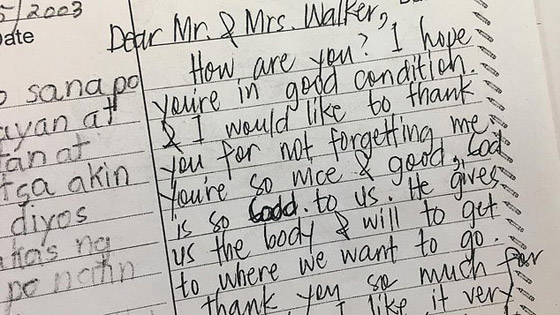 5/2003
Date
sana po
ayan at
tan at
tsa akin
diyos
ng
po natin
Dear Mr. & Mrs. Walker,
How are you? I hope
you're in good condition.
& I would like to thank
you for not forgetting me.
You're so nice & good, God
is so Good. to us. He gives
us the body & will to get
to where we want to go.
thank you so much for
I like it very